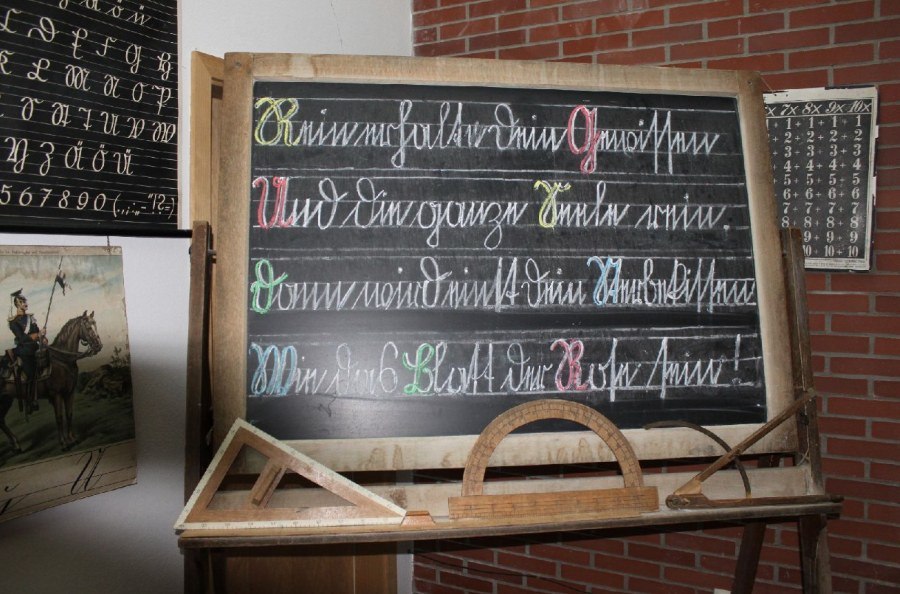 Rein erhalte dein Gewissen
Und die ganze Seele rein.
Dann wird einst dein Sterbekissen
Wie das Blatt der Rose sein!
5 6 7 8 9 0
7x 8x 9x 10x
1 ÷ 1 ÷ 1
2 ÷ 2 ÷ 2 ÷ 2
3 ÷ 3 ÷ 3 ÷ 3
4 ÷ 4 ÷ 4 ÷ 4
5 ÷ 5 ÷ 5 ÷ 5
6 ÷ 6 ÷ 6 ÷ 6
7 ÷ 7 ÷ 7 ÷ 7
8 8 ÷ 8 ÷ 8
9 ÷ 9 ÷ 9
10 ÷ 10